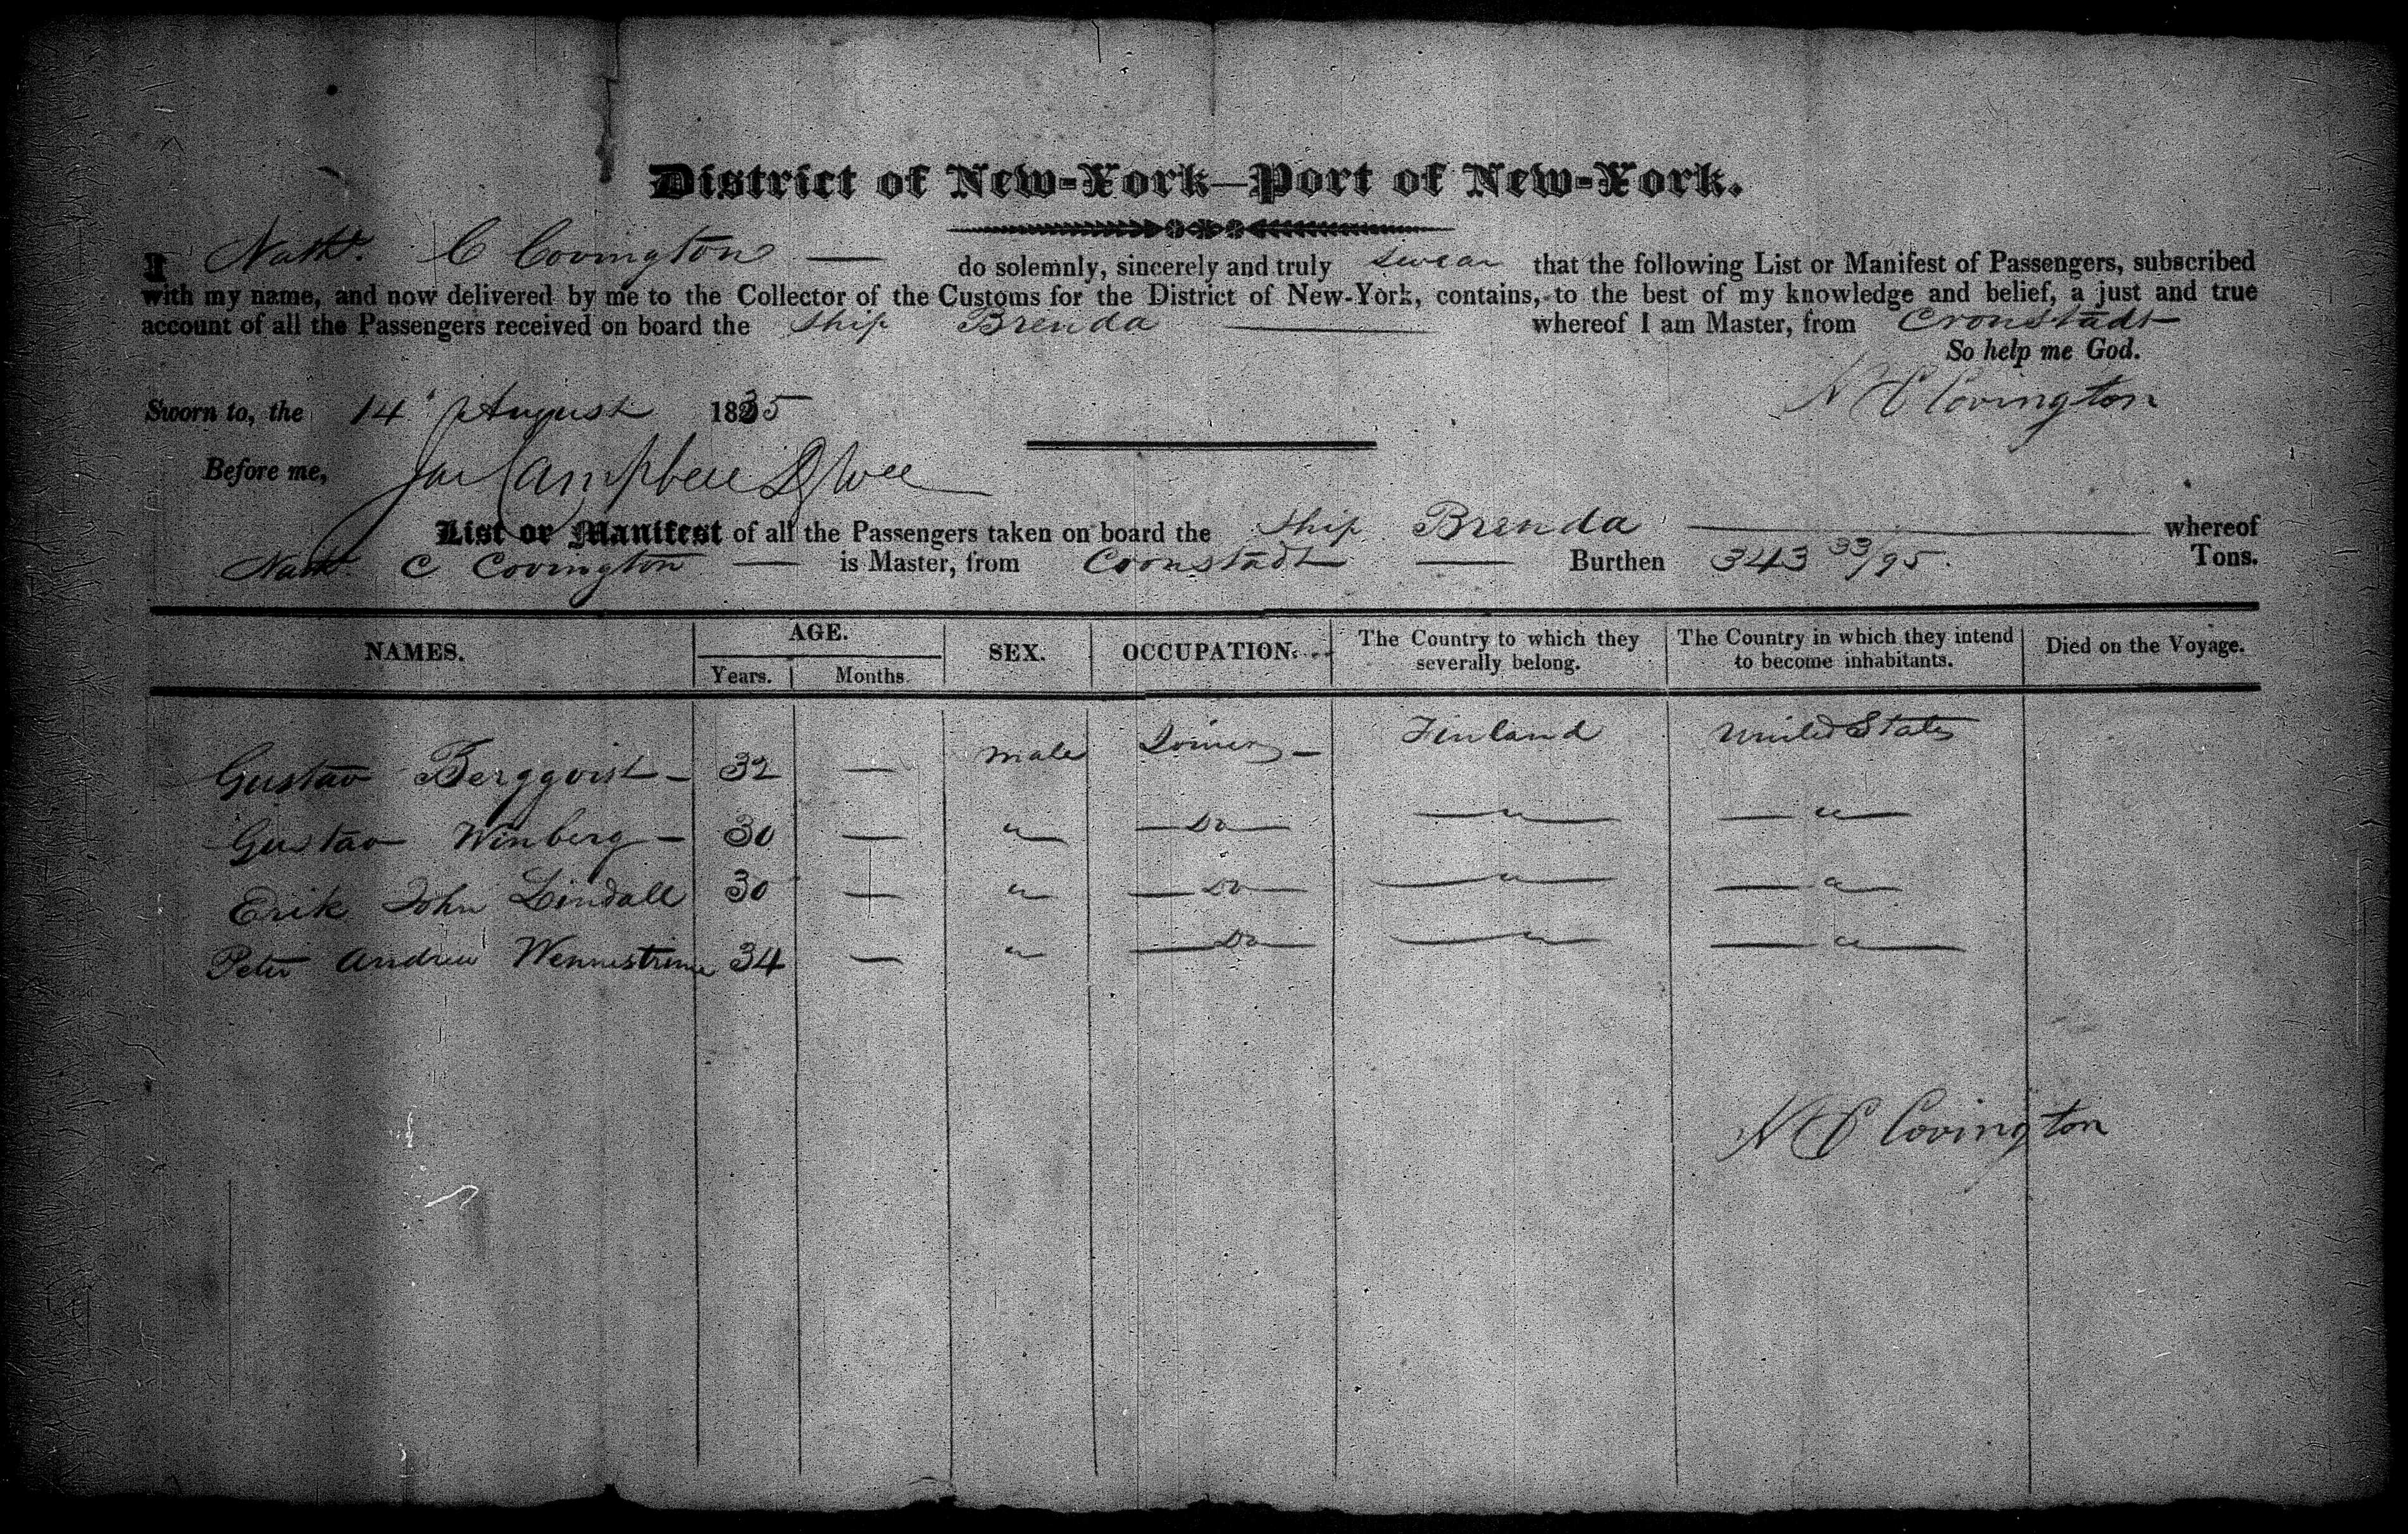 District of New-York—Port of New-York.
I Nathl. C Covington — do solemnly, sincerely and truly swear that the following List or Manifest of Passengers, subscribed
with my name, and now delivered by me to the Collector of the Customs for the District of New-York, contains, to the best of my knowledge and belief, a just and true
account of all the Passengers received on board the Ship Brenda — whereof I am Master, from Cronstadt
So help me God.
N C Covington
Sworn to, the 14 August 1835
Before me, Campbell
List or Manifest of all the Passengers taken on board the Ship Brenda — whereof
Nathl. C Covington — is Master, from Cronstadt — Burthen 343 33/95. Tons.
NAMES. AGE. Years. Months. SEX. OCCUPATION. The Country to which they severally belong. The Country in which they intend to become inhabitants. Died on the Voyage.
Gustav Bergqvist — 32 — male Joiner — Finland United States
Gustav Winberg — 30 — " — Do — — " — — " —
Erik John Lindall 30 — " — Do — — " — — " —
Peter Andrew 34 — " — Do — — " — — " —
N C Covington